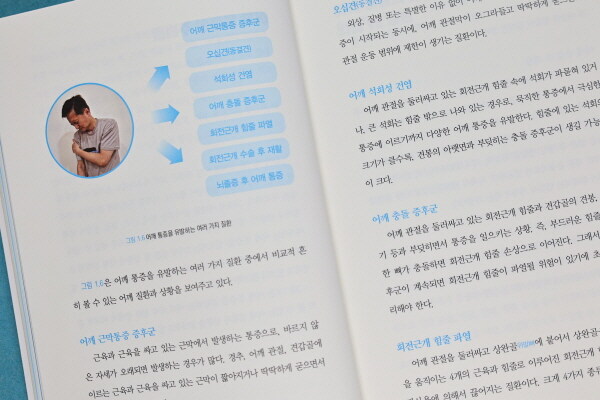 어깨 근막통증 증후군
오십견(동결견)
석회성 건염
어깨 충돌 증후군
회전근개 힘줄 파열
회전근개 수술 후 재활
뇌졸중 후 어깨 통증
그림 1.6 어깨 통증을 유발하는 여러 가지 질환
그림 1.6은 어깨 통증을 유발하는 여러 가지 질환 중에서 비교적 흔
히 볼 수 있는 어깨 질환과 상황을 보여주고 있다.
어깨 근막통증 증후군
근육과 근육을 싸고 있는 근막에서 발생하는 통증으로, 바르지 않
은 자세가 오래되면 발생하는 경우가 많다. 경추, 어깨 관절, 견갑골에
이르는 근육과 근육을 싸고 있는 근막이 짧아지거나 딱딱하게 굳으면서
오십견(동결견)
외상, 질병 또는 특별한 이유 없이
증이 시작되는 동시에, 어깨 관절막이 오그라들고 딱딱하게 굳으
관절 운동 범위에 제한이 생기는 질환이다.
어깨 석회성 건염
어깨 관절을 둘러싸고 있는 회전근개 힘줄 속에 석회가 파묻혀 있거
나, 큰 석회는 힘줄 밖으로 나와 있는 경우로, 뭉직한 통증에서 극심한
통증에 이르기까지 다양한 어깨 통증을 유발한다. 힘줄에 있는 석회의
크기가 클수록, 견봉의 아랫면과 부딪하는 충돌 증후군이 생길 가능
이 크다.
어깨 충돌 증후군
어깨 관절을 둘러싸고 있는 회전근개 힘줄과 견갑골의 견봉,
기 등과 부딪하면서 통증을 일으키는 상황, 즉, 부드러운 힘줄
한 뼈가 충돌하면 회전근개 힘줄 손상으로 이어진다. 그래서
후군이 계속되면 회전근개 힘줄이 파열될 위험이 있기에 초
리해야 한다.
회전근개 힘줄 파열
어깨 관절을 둘러싸고 상완골에 붙어서 상완
을 움직이는 4개의 근육과 힘줄로 이루어진 회전근개
에 의해서 끊어지는 질환이다. 크게 4가지 종류